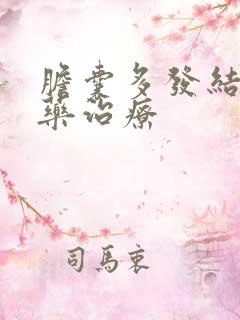 膽囊多發結
藥治療
司馬衷